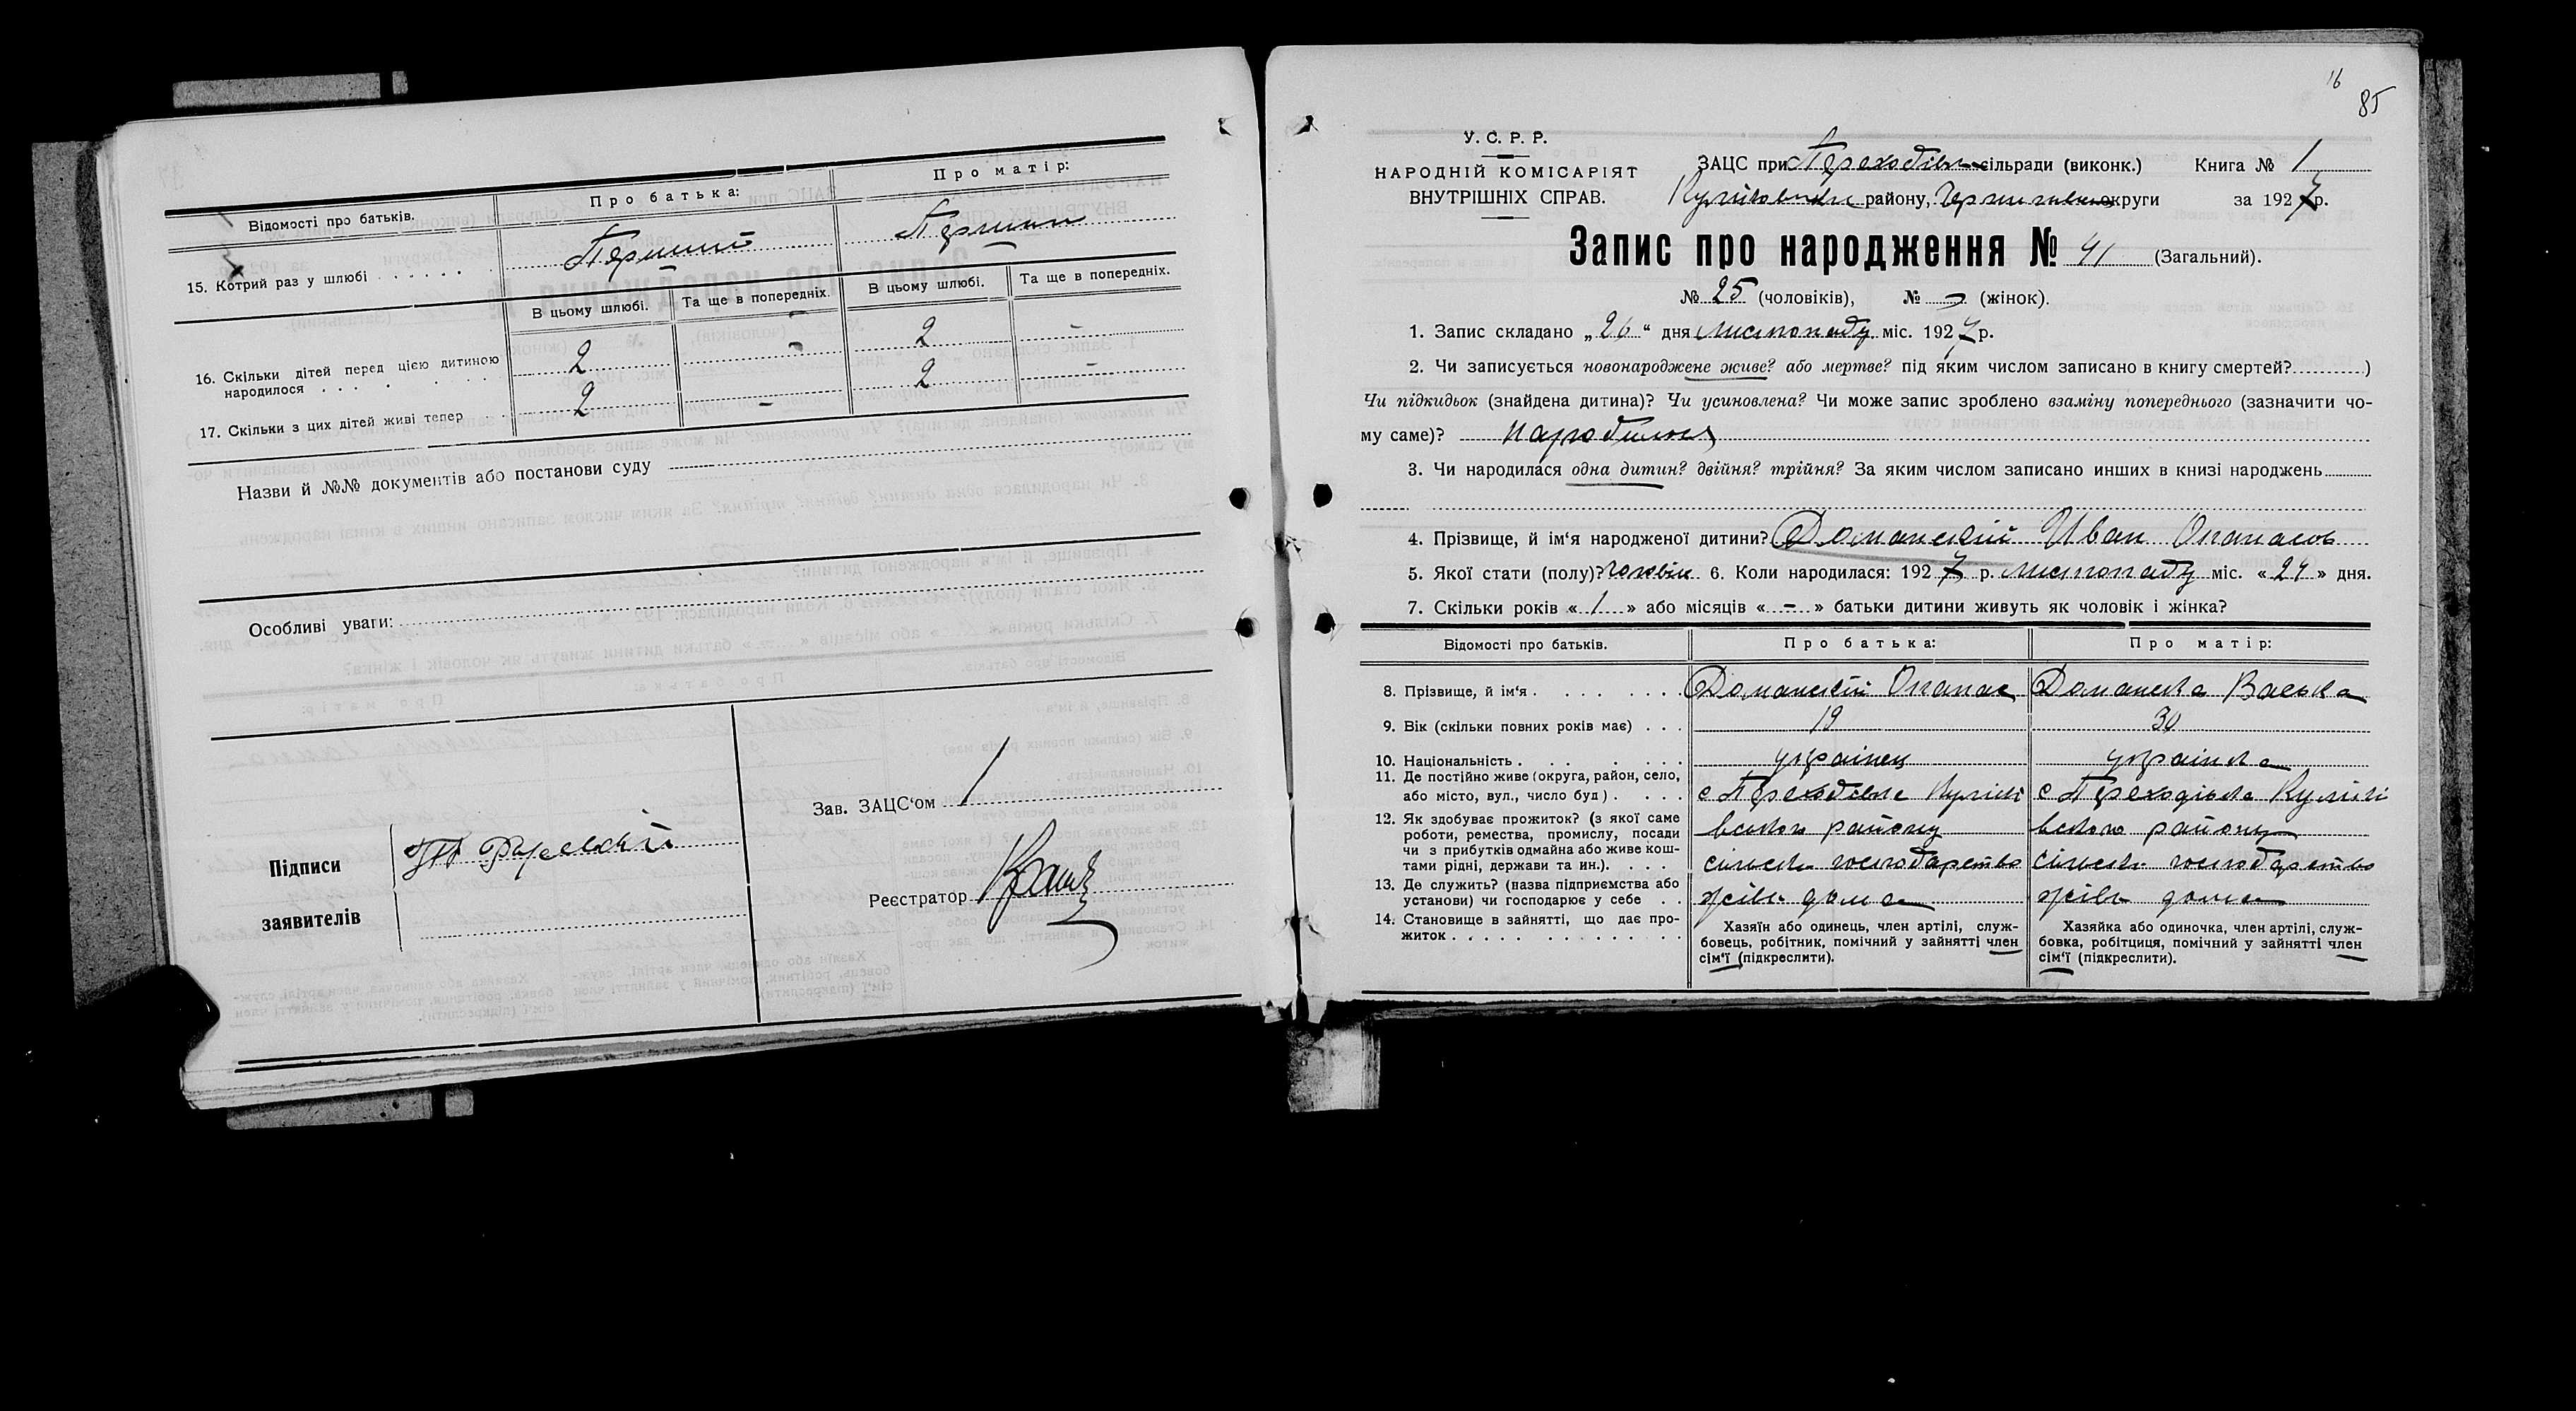 Відомості про батьків.
Про батька:
Про матір:
15. Котрий раз у шлюбі . . . . . .
Перший
Перший
В цьому шлюбі.
Та ще в попередніх.
В цьому шлюбі.
Та ще в попередніх.
16. Скільки дітей перед цією дитиною
народилося . . . .
2 - 2 -
17. Скільки з цих дітей живі тепер . .
2 - 2 -
Назви й №№ документів або постанови суду
Особливі уваги:
Підписи
заявителів
Зав. ЗАЦС‘ом
Реєстратор
16
85
У. С. Р. Р.
НАРОДНІЙ КОМІСАРІЯТ
ВНУТРІШНІХ СПРАВ.
ЗАЦС при сільради (виконк.) Книга № 1
району, округи за 1927 р.
Запис про народження № 41 (Загальний).
№ 25 (чоловіків), № - (жінок).
1. Запис складано „26“ дня листопаду міс. 1927 р.
2. Чи записується новонароджене живе? або мертве? під яким числом записано в книгу смертей?............)
Чи підкидьок (знайдена дитина)? Чи усиновлена? Чи може запис зроблено взаміну попереднього (зазначити чо-
му саме)?
3. Чи народилася одна дитин? двійня? трійня? За яким числом записано инших в книзі народжень
4. Прізвище, й ім‘я народженої дитини? Доманский Иван Опанасов
5. Якої стати (полу)? чоловік 6. Коли народилася: 1927 р. листопаду міс. «24» дня.
7. Скільки років «1» або місяців «-» батьки дитини живуть як чоловік і жінка?
Відомості про батьків.
Про батька:
Про матір:
8. Прізвище, й ім‘я . . . . . . .
Доманский Опанас
Доманска Васька
9. Вік (скільки повних років має) . . .
19
30
10. Національність . . . . . .
українец
українка
11. Де постійно живе (округа, район, село,
або місто, вул., число буд) . . . .
12. Як здобуває прожиток? (з якої саме
роботи, ремества, промислу, посади
чи з прибутків одмайна або живе кош-
тами рідні, держави та ин.). . . .
13. Де служить? (назва підприємства або
установи) чи господарює у себе . .
14. Становище в зайнятті, що дає про-
житок . . . . . . . . . . . .
с Переходівка Куликі
вского району
сільске господарство
жіве дома
Хазяїн або одинець, член артілі, служ-
бовець, робітник, помічний у зайнятті член
сім‘ї (підкреслити).
с Переходівка Куликі
вского району
сільске господарство
жіве дома
Хазяйка або одиночка, член артілі, служ-
бовка, робітциця, помічний у зайнятті член
сім‘ї (підкреслити).